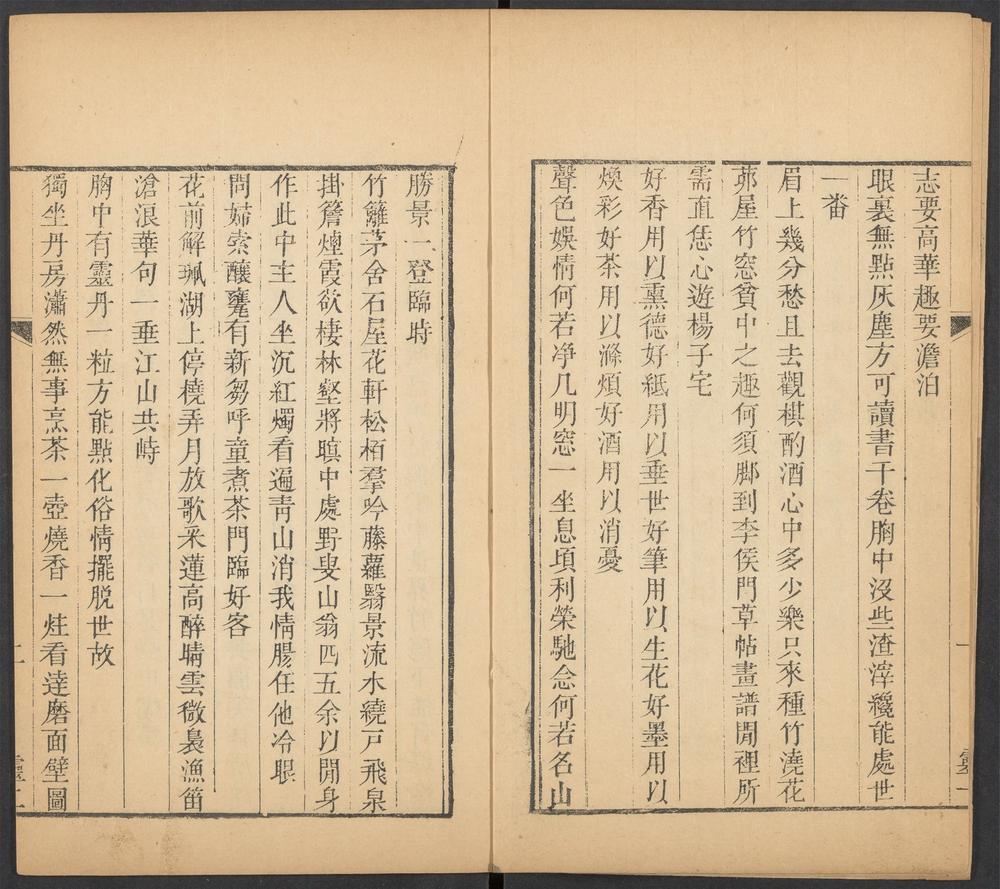 志要高華趣要澹泊
眼裏無點灰塵方可讀書千卷胸中沒些渣滓纔能處世
一番
眉上幾分愁且去觀棋酌酒心中多少樂只來種竹澆花
茆屋竹窓貧中之趣何須脚到李侯門草帖畫譜閒裡所
需直恁心遊楊子宅
好香用以熏德好紙用以垂世好筆用以生花好墨用以
煥彩好茶用以滌煩好酒用以消憂
聲色娛情何若净几明窓一坐息頃利榮馳念何若名山
勝景一登臨時
竹籬茅舍石屋花軒松栢羣吟藤蘿翳景流水繞戸飛泉
掛簷煙霞欲棲林壑將暝中處野叟山翁四五余以閒身
作此中主人坐沉紅燭看遍靑山消我情腸任他冷眼
問婦索釀甕有新芻呼童煮茶門臨好客
花前解珮湖上停橈弄月放歌采蓮高醉晴雲微裊漁笛
滄浪華句一垂江山共峙
胸中有靈丹一粒方能點化俗情擺脫世故
獨坐丹房瀟然無事烹茶一壺燒香一炷看逹磨面壁圖